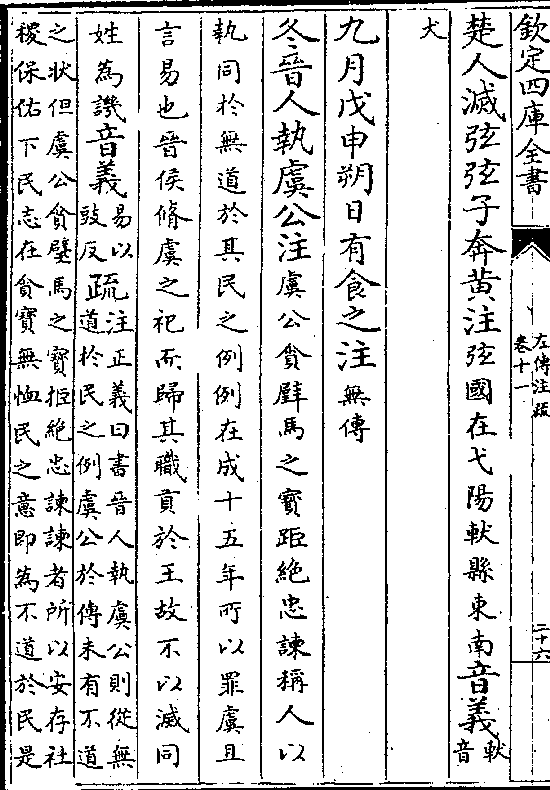 欽定四庫全書
左傳注疏
卷十一
二十六
楚人滅弦弦子奔黄注弦國在弋陽軑縣東南音義軑音
犬
九月戊申朔日有食之注無傳
冬晉人執虞公注虞公貪璧馬之寳距絶忠諫稱人以
執同於無道於其民之例例在成十五年所以罪虞且
言易也晉侯脩虞之祀而歸其職貢於王故不以滅同
姓為譏音義易以
豉反疏注正義曰書晉人執虞公則從無
道於民之例虞公於傳未有不道
之状但虞公貪璧馬之寳拒絶忠諫諫者所以安存社
稷保佑下民志在貪寳無恤民之意即為不道於民是